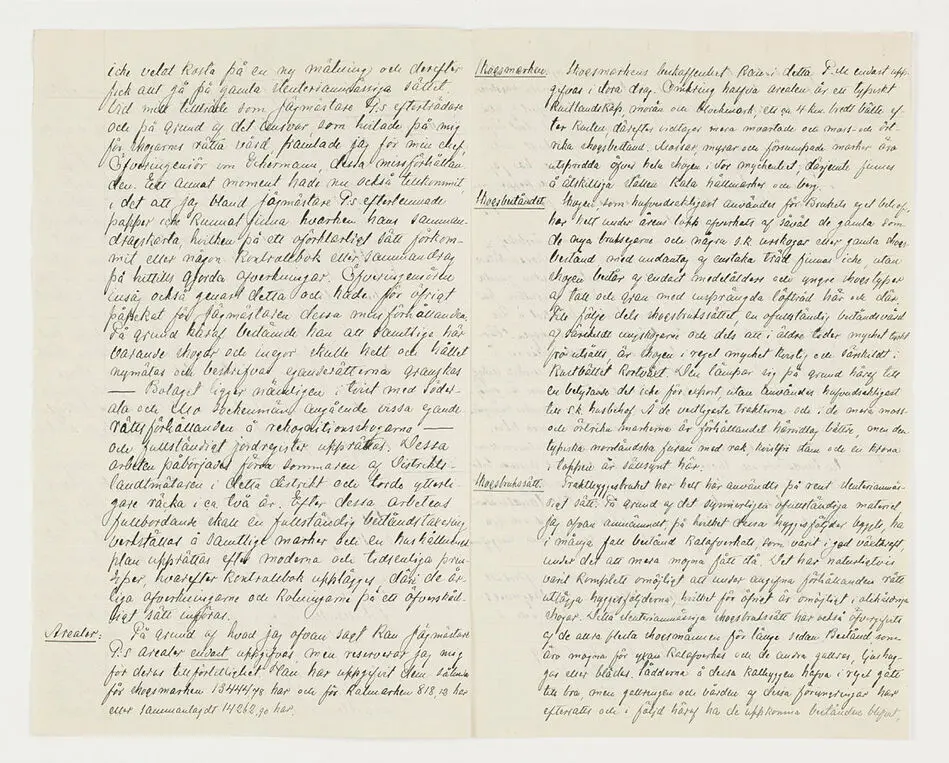 icke velat kosta på en ny mätning och derefter
fick allt gå på gamla slentrianmässiga sättet.
Vid mitt tillträde som jägmästare P:s efterträdare
och på grund af det ansvar, som hvilade på mig
för skogarnes rätta vård, framlade jag för min chef,
Öfveringeniör von Eckermann, dessa missförhållan-
den. Ett annat moment hade nu också tillkommit,
i det att jag bland jägmästare P:s efterlemnade
papper icke kunnat finna hvarken hans samman-
dragskarta, hvilken på ett oförklarligt sätt förkom-
mit eller någon kontrollbok eller sammandrag
på hittills gjorda afverkningar. Öfveringeniören
insåg också genast detta och hade för öfrigt
påpekat för jägmästaren dessa missförhållanden.
På grund häraf beslöt han att samtliga här-
varande skogar och inegor skulle helt och hållet
nymätas och beskrifvas, eganderätterna granskas
— Bolaget ligger nämligen i tvist med Söder-
ala och Mo sockenmän angående vissa egande-
rättsförhållanden å rekognitionsskogarna —
och fullständigt jordregister upprättas. Dessa
arbeten påbörjades förra sommaren af Distrikts-
landtmätaren i detta distrikt och torde ytterli-
gare räcka i ca två år. Efter dessa arbetens
fullbordande skall en fullständig beståndstaxering
verkställas å samtliga marker och en hushållnings-
plan upprättas efter moderna och tidsenliga prin-
ciper, hvarefter kontrollbok upplägges, däri de år-
liga afverkningarne och kolningarne på ett öfverskåd-
ligt sätt införas.
Arealer: På grund af hvad jag ofvan sagt kan jägmästare
P:s arealer endast uppgifvas, men reserverar jag mig
för deras tillförlitlighet. Han har uppgifvit dem sålunda
för skogsmarken 13444,78 har och för kalmarken 818,12 har
eller sammanlagdt 14262,90 har.
Skogsmarken. Skogsmarkens beskaffenhet kan i detta P.M. endast upp-
gifvas i stora drag. Omkring halfva arealen är ett typiskt
kustlandskap, morän och blockmark, ett ca 4 km. bredt bälte ef-
ter kusten därefter vidtager mera mossartade och moss- och ört-
rika skogsbestånd. Mossar, myrar och försumpade marker äro
utspridda öfver hela skogen i stor myckenhet, därjemte finnes
å åtskilliga ställen kala hällmarker och berg.
Skogsbeståndet. Skogen, som hufvudsakligast användes för Brukets eget behof,
har helt under årens lopp afverkats af såväl de gamla som
de nya bruksegarne och några s.k. urskogar eller gamla skogs-
bestånd med undantag af enstaka träd finnas icke, utan
skogen består af endast medelålders och yngre skogstyper
af tall och gran med insprängda löfträd här och där.
Till följe dels skogsbrukssättet, en ofullständig beståndsvård
af särskildt ungskogarne och dels att i äldre tider mycket torrt
frö utsåtts, är skogen i regel mycket kvistig och särskildt i
kustbältet kortväxt. Den lämpar sig på grund häraf till
en betydande del icke för export, utan användes hufvudsakligast
till s.k. husbehof. I de vestligaste trakterna och i de mera moss-
och örtrika markerna är förhållandet härvidlag bättre, men den
typiska norrländska furan med rak, kvistfri stam och en krona
i toppen är sällsynt här.
Skogsbrukssätt. Trakthyggesbruket har helt här användts på rent slentrianmäs-
sigt sätt. På grund af det synnerligen ofullständiga materiel,
jag ofvan omnämndt, på hvilket dessa hyggesföljder byggts, ha
i många fall bestånd kalafverkats som varit i god växtkraft,
under det att mera mogna fått stå. Det har naturligtvis
varit komplett omöjligt att under angifna förhållanden rätt
utlägga hyggesföljderna, hvilket för öfrigt är omöjligt i olikåldriga
skogar. Detta slentrianmässiga skogsbrukssätt har också öfvergifvits
af de allra flesta skogsmännen för länge sedan. Bestånd som
äro mogna för kalafverkas och de andra gallras, ljushug-
gas eller blädas. Sådderna å dessa kalhyggen hafva i regel gått
till bra, men gallringen och vården af dessa föryngringar har
eftersatts och i följd häraf ha de uppkomna bestånden blifvit,